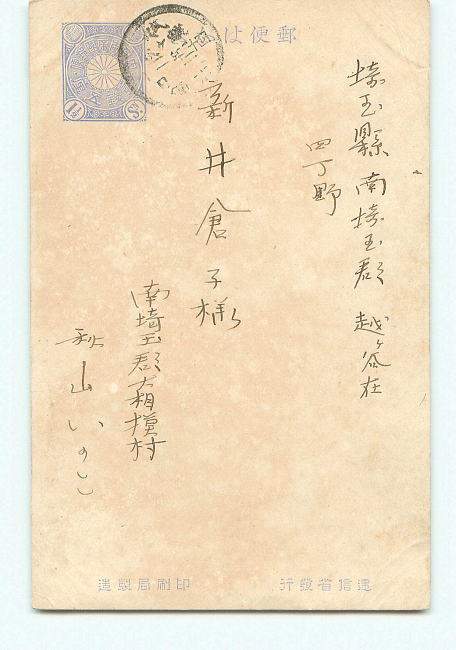 郵便は
埼玉縣南埼玉郡越ヶ谷在
四丁野
新井倉子様
南埼玉郡大相摸村
秋山いのこ
遞信省發行
印刷局製造
1½Sn.